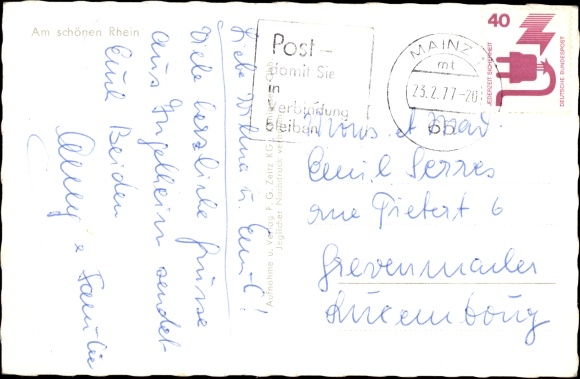 Am schönen Rhein
Liebe Wilma u. Emil!
Viele herzliche Grüsse
aus Ingelheim sendet
Euch Beiden
Anny & Familie
Aufnahme u. Verlag F. G. Zeitz KG
Jeglicher Nachdruck
Post –
damit Sie
in
Verbindung
bleiben
MAINZ
mt
23.2.77-20
40
JEDERZEIT SICHERHEIT
DEUTSCHE BUNDESPOST
Mons et Mad.
Emil Serres
rue Pietert 6
Grevenmacher
Luxembourg